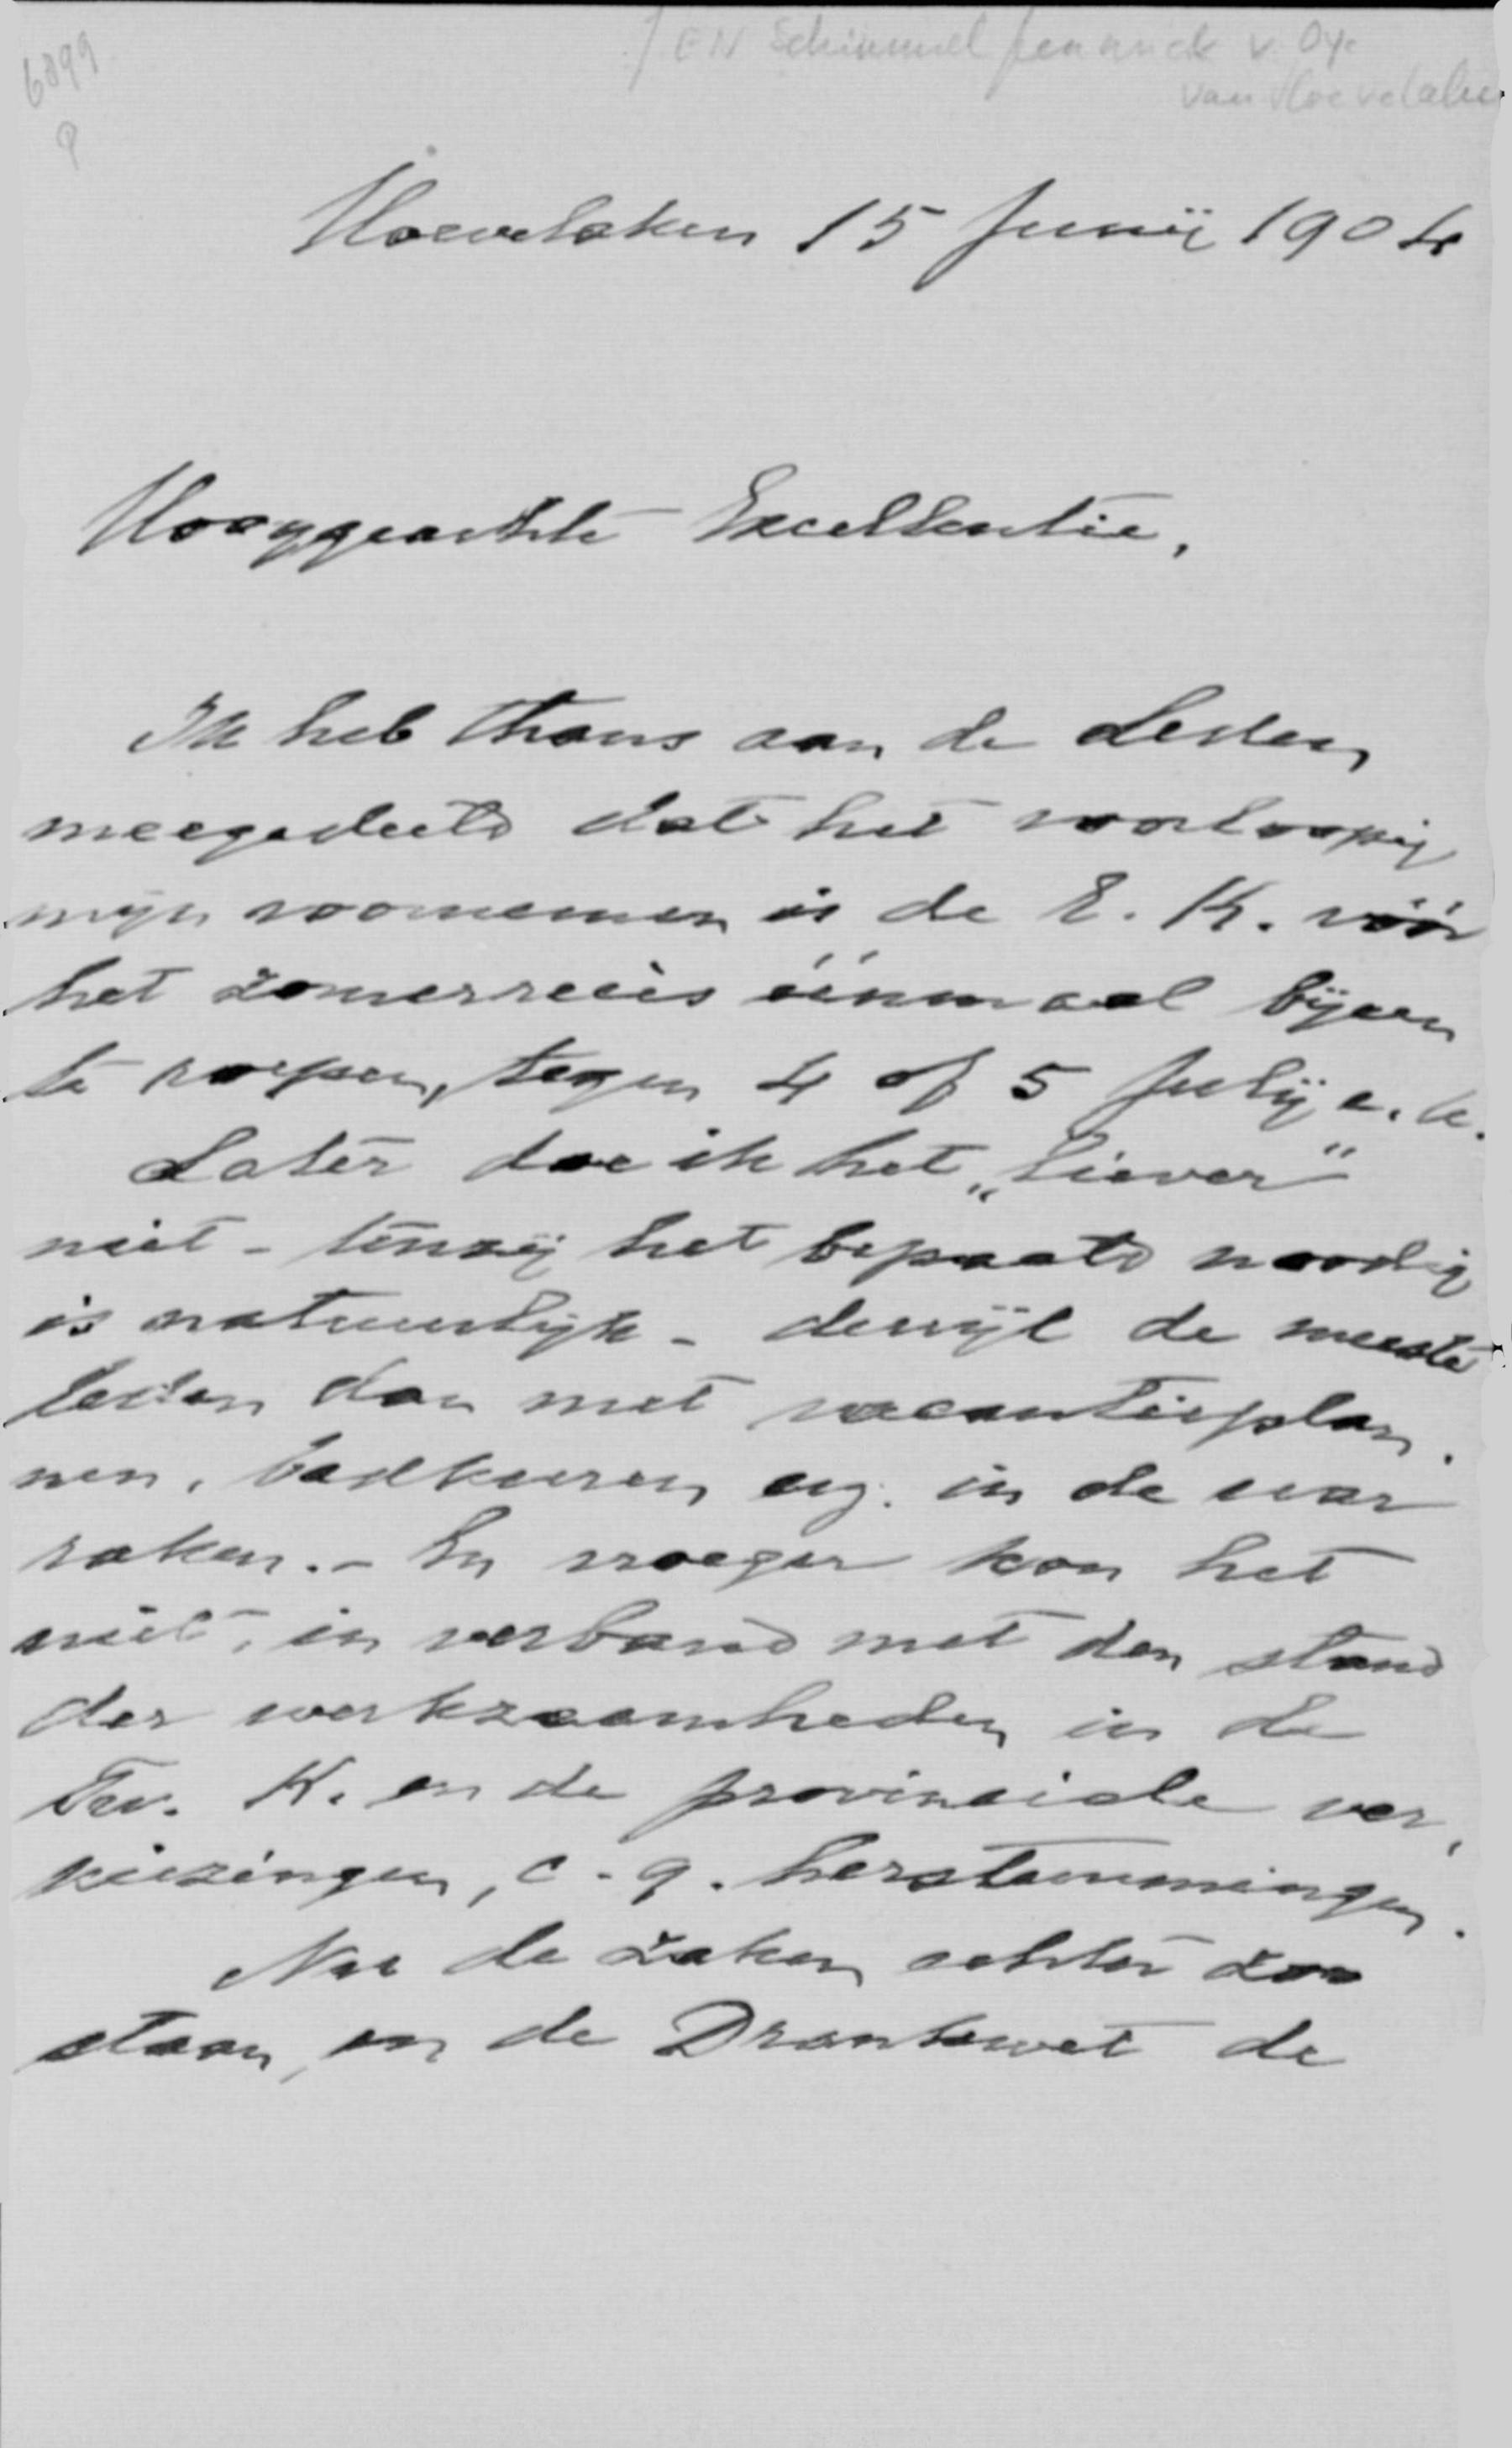 6899
JEN Schimmelpenninck v. Oye
van Hoevelaken
Hoevelaken 15 Junij 1904
Hooggeachte Excellentie,
Ik heb thans aan de Leden
meegedeeld dat het voorloopig
mijn voornemen is de E. K. vóór
het zomerreces éénmaal bijeen
te roepen, tegen 4 of 5 Julij e. k.
Later doe ik het „liever"
niet - tenzij het bepaald noodig
is natuurlijk - derwijl de meeste
leden dan met vacantieplan-
nen, badkuren enz. in de war
raken. - En vroeger kon het
niet, in verband met den stand
der werkzaamheden in de
Tw. K. en de provinciale ver-
kiezingen, c. q. herstemmingen.
Nu de zaken echter zoo
staan, en de Drankwet de